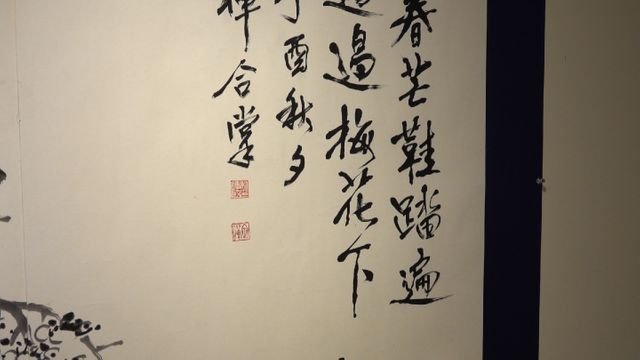 春芒鞋踏遍
過梅花下
丁酉秋夕
合掌